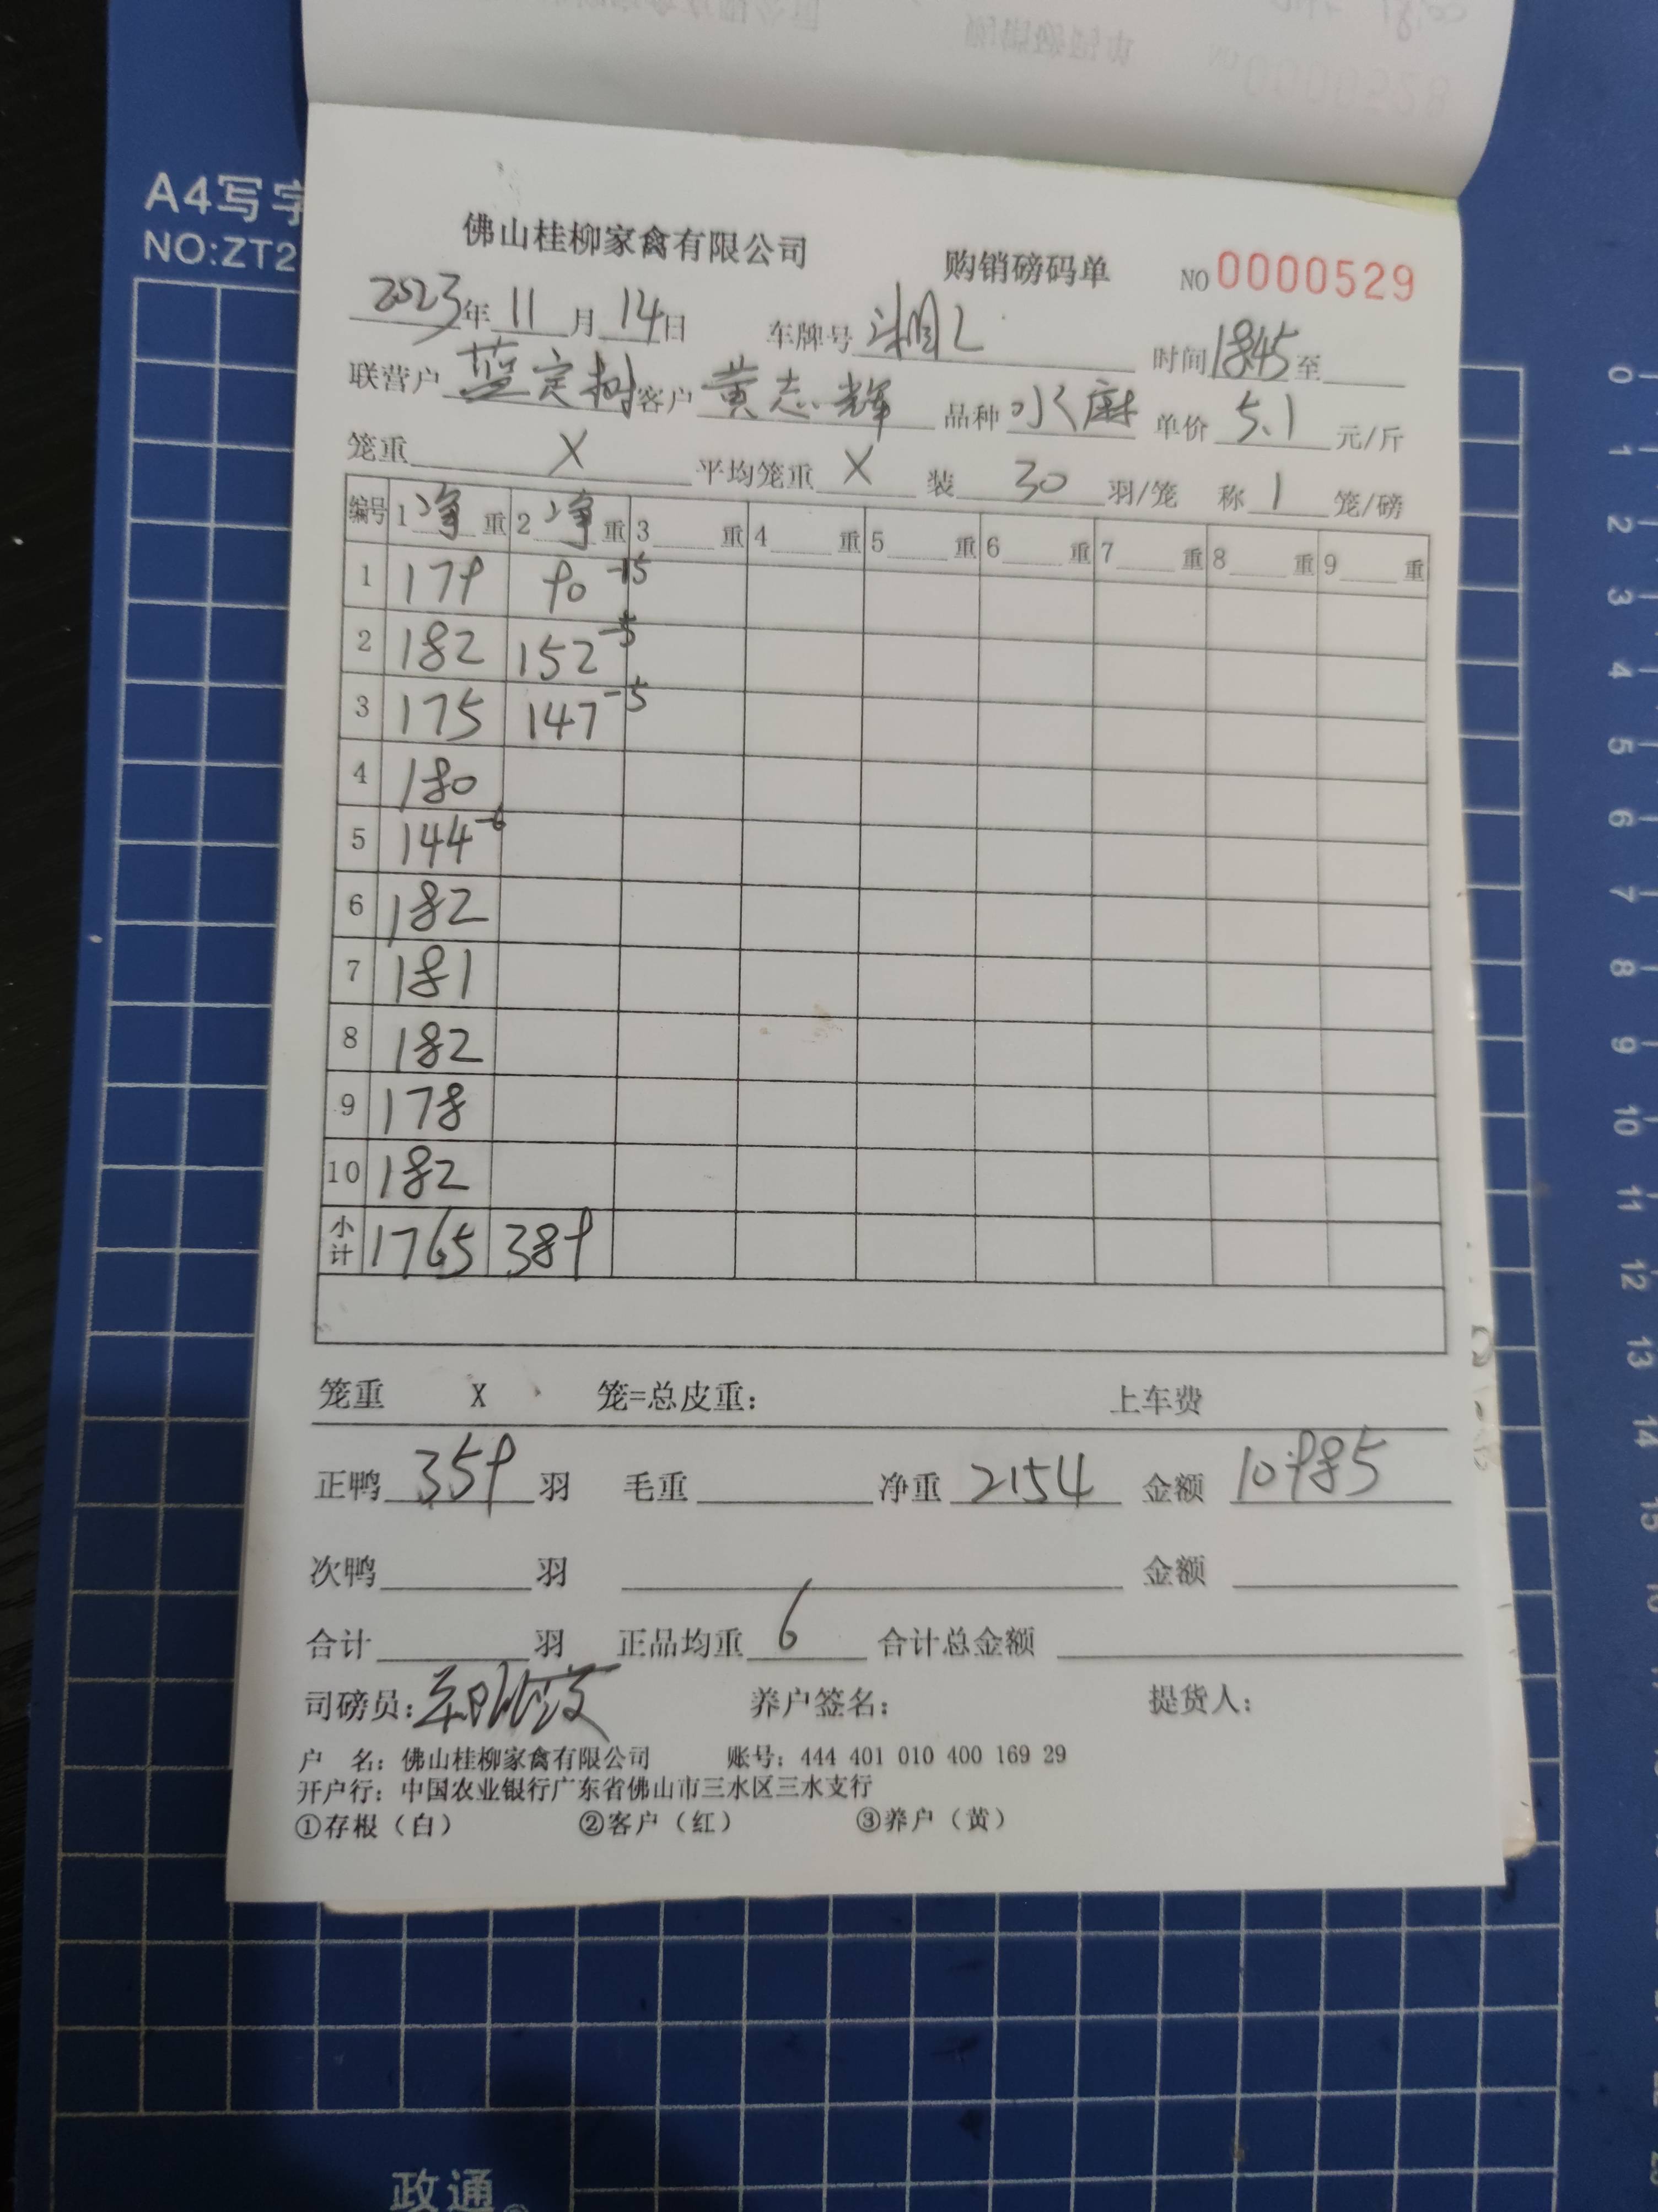 A4写字
NO:ZT2
佛山桂柳家禽有限公司 购销磅码单 NO 0000529
2023年 11 月 14日 车牌号 湘L 时间 1845 至
联营户 蓝定树 客户 黄志辉 品种 水麻 单价 5.1 元/斤
笼重 X 平均笼重 X 装 30 羽/笼 称 1 笼/磅
编号 1 净 重 2 净 重 3 重 4 重 5 重 6 重 7 重 8 重 9 重
1 179 90 -15
2 182 152 -5
3 175 147 -5
4 180
5 144 -6
6 182
7 181
8 182
9 178
10 182
小计 1765 389
笼重 X 笼=总皮重: 上车费
正鸭 359 羽 毛重 净重 2154 金额 10985
次鸭 羽 金额
合计 羽 正品均重 6 合计总金额
司磅员: 养户签名: 提货人:
户 名: 佛山桂柳家禽有限公司 账号: 444 401 010 400 169 29
开户行: 中国农业银行广东省佛山市三水区三水支行
①存根（白） ②客户（红） ③养户（黄）
0
1
2
3
4
5
6
7
8
9
10
11
12
13
14
15
政通